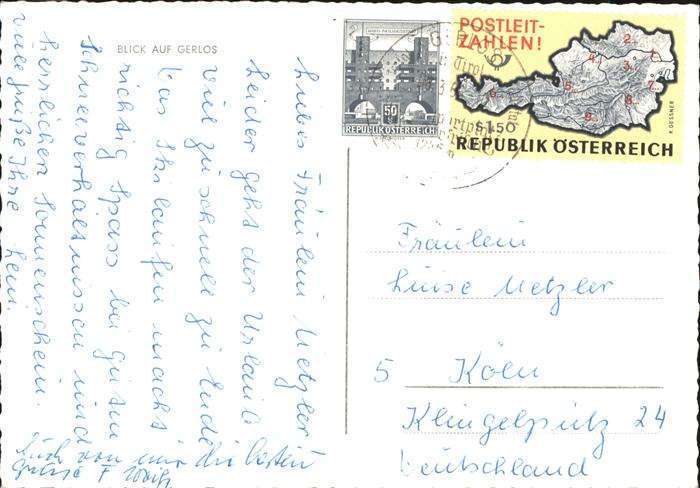 BLICK AUF GERLOS
Liebes Fräulein Metzler
Leider geht der Urlaub
viel zu schnell zu Ende
Das Skilaufen macht
richtig Spass bei guten
Schneeverhältnissen und
herrlichen Sonnenschein.
viele Grüße Ihre
Auch von mir die besten
Grüsse F
50
REPUBLIK ÖSTERREICH
POSTLEIT-
ZAHLEN!
2..
1..
4..
3..
5..
7..
6..
8..
9..
S1.50
REPUBLIK ÖSTERREICH
Tirol
Fräulein
Luise Metzler
5 Köln
Klingelpütz 24
Deutschland